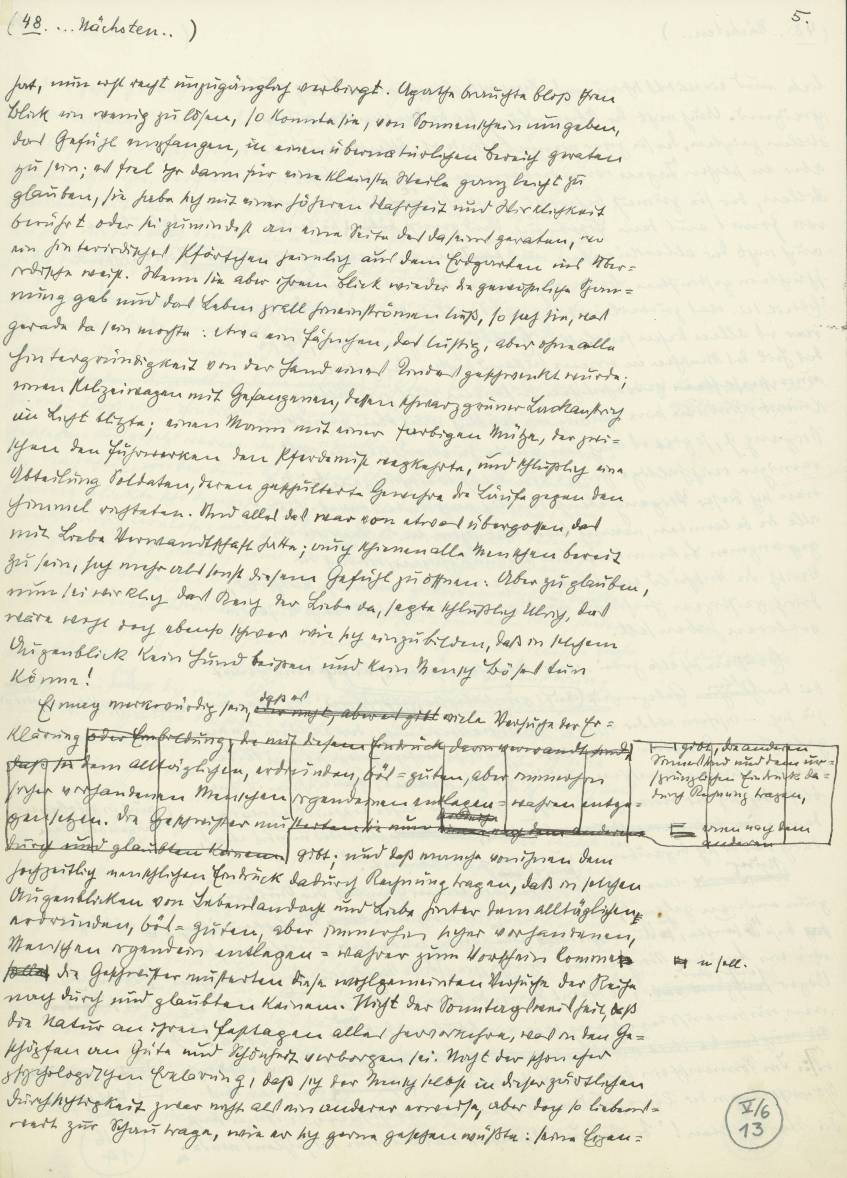 (48. ... Nächsten.. )
5.
hat, nun erst recht unzugänglich verbirgt. Agathe brauchte bloß ihren
Blick ein wenig zu lösen, so konnte sie, von Sonnenschein umgeben,
das Gefühl empfangen, in einen übernatürlichen Bereich geraten
zu sein; es fiel ihr dann für eine kleinste Weile ganz leicht zu
glauben, sie habe sich mit einer höheren Wahrheit und Wirklichkeit
berührt oder sei zumindest an eine Seite des Daseins geraten, wo
ein hinterirdisches Pförtchen heimlich aus dem Erdgarten ins Über=
irdische weist. Wenn sie aber ihrem Blick wieder die gewöhnliche Span=
nung gab und das Leben prall hineinströmen ließ, so sah sie, was
gerade da sein mochte: etwa ein Fähnchen, das lustig, aber ohne alle
Hintergründigkeit von der Hand eines Kindes geschwenkt wurde;
einen Polizeiwagen mit Gefangenen, dessen schwarzgrüner Lackanstrich
im Licht blitzte; einen Mann mit einer farbigen Mütze, der zwi=
schen den Fuhrwerken den Pferdemist wegkehrte, und schließlich eine
Abteilung Soldaten, deren geschulterte Gewehre die Läufe gegen den
Himmel richteten. Und alles das war von etwas übergossen, das
mit Liebe Verwandtschaft hatte; auch schienen alle Menschen bereit
zu sein, sich mehr als sonst diesem Gefühl zu öffnen: Aber zu glauben,
nun sei wirklich das Reich der Liebe da, sagte schließlich Ulrich, das
wäre wohl doch ebenso schwer wie sich einzubilden, daß in solchem
Augenblick kein Hund beißen und kein Mensch Böses tun
könne!
daß es
Ei mag merkwürdig sein, oder nicht, aber es gibt viele Versuche der Er=
klärung oder Einbildung, die mit diesem Eindruck darin verwandt sind,
gibt, die anderen
Sinnes sind und dem ur=
sprünglichen Eindruck da=
durch Rechnung tragen,
daß sie dem alltäglichen, erdrunden, bös=guten, aber immerhin
sicher vorhandenen Menschen irgendeinen entlegen=wahren entge=
gensetzen. Die Geschwister musterten sie nun einen nach dem anderen
einen nach dem
anderen
durch und glaubten keinem. gibt; und daß manche von ihnen dem
hochzeitlich menschlichen Eindruck dadurch Rechnung tragen, daß in solchen
Augenblicken von Lebensandacht und Liebe hinter dem Alltäglichen,
erdrunden, bös=guten, aber immerhin sicher vorhandenen,
Menschen irgendein entlegen=wahrer zum Vorschein kommen
n soll.
sollte die Geschwister musterten diese wohlgemeinten Versuche der Reihe
nach durch und glaubten keinem. Nicht der Sonntagsweisheit, daß
die Natur an ihren Festtagen alles hervorkehre, was in den Ge=
schöpfen an Güte und Schönheit verborgen sei. Nicht der schon eher
psychologischen Erklärung, daß sich der Mensch selbst in dieser zärtlichen
Durchsichtigkeit zwar nicht als ein anderer erweise, aber doch so liebens=
wert zur Schau trage, wie er sich gerne gesehen wüßte: seine Eigen=
V/6
13